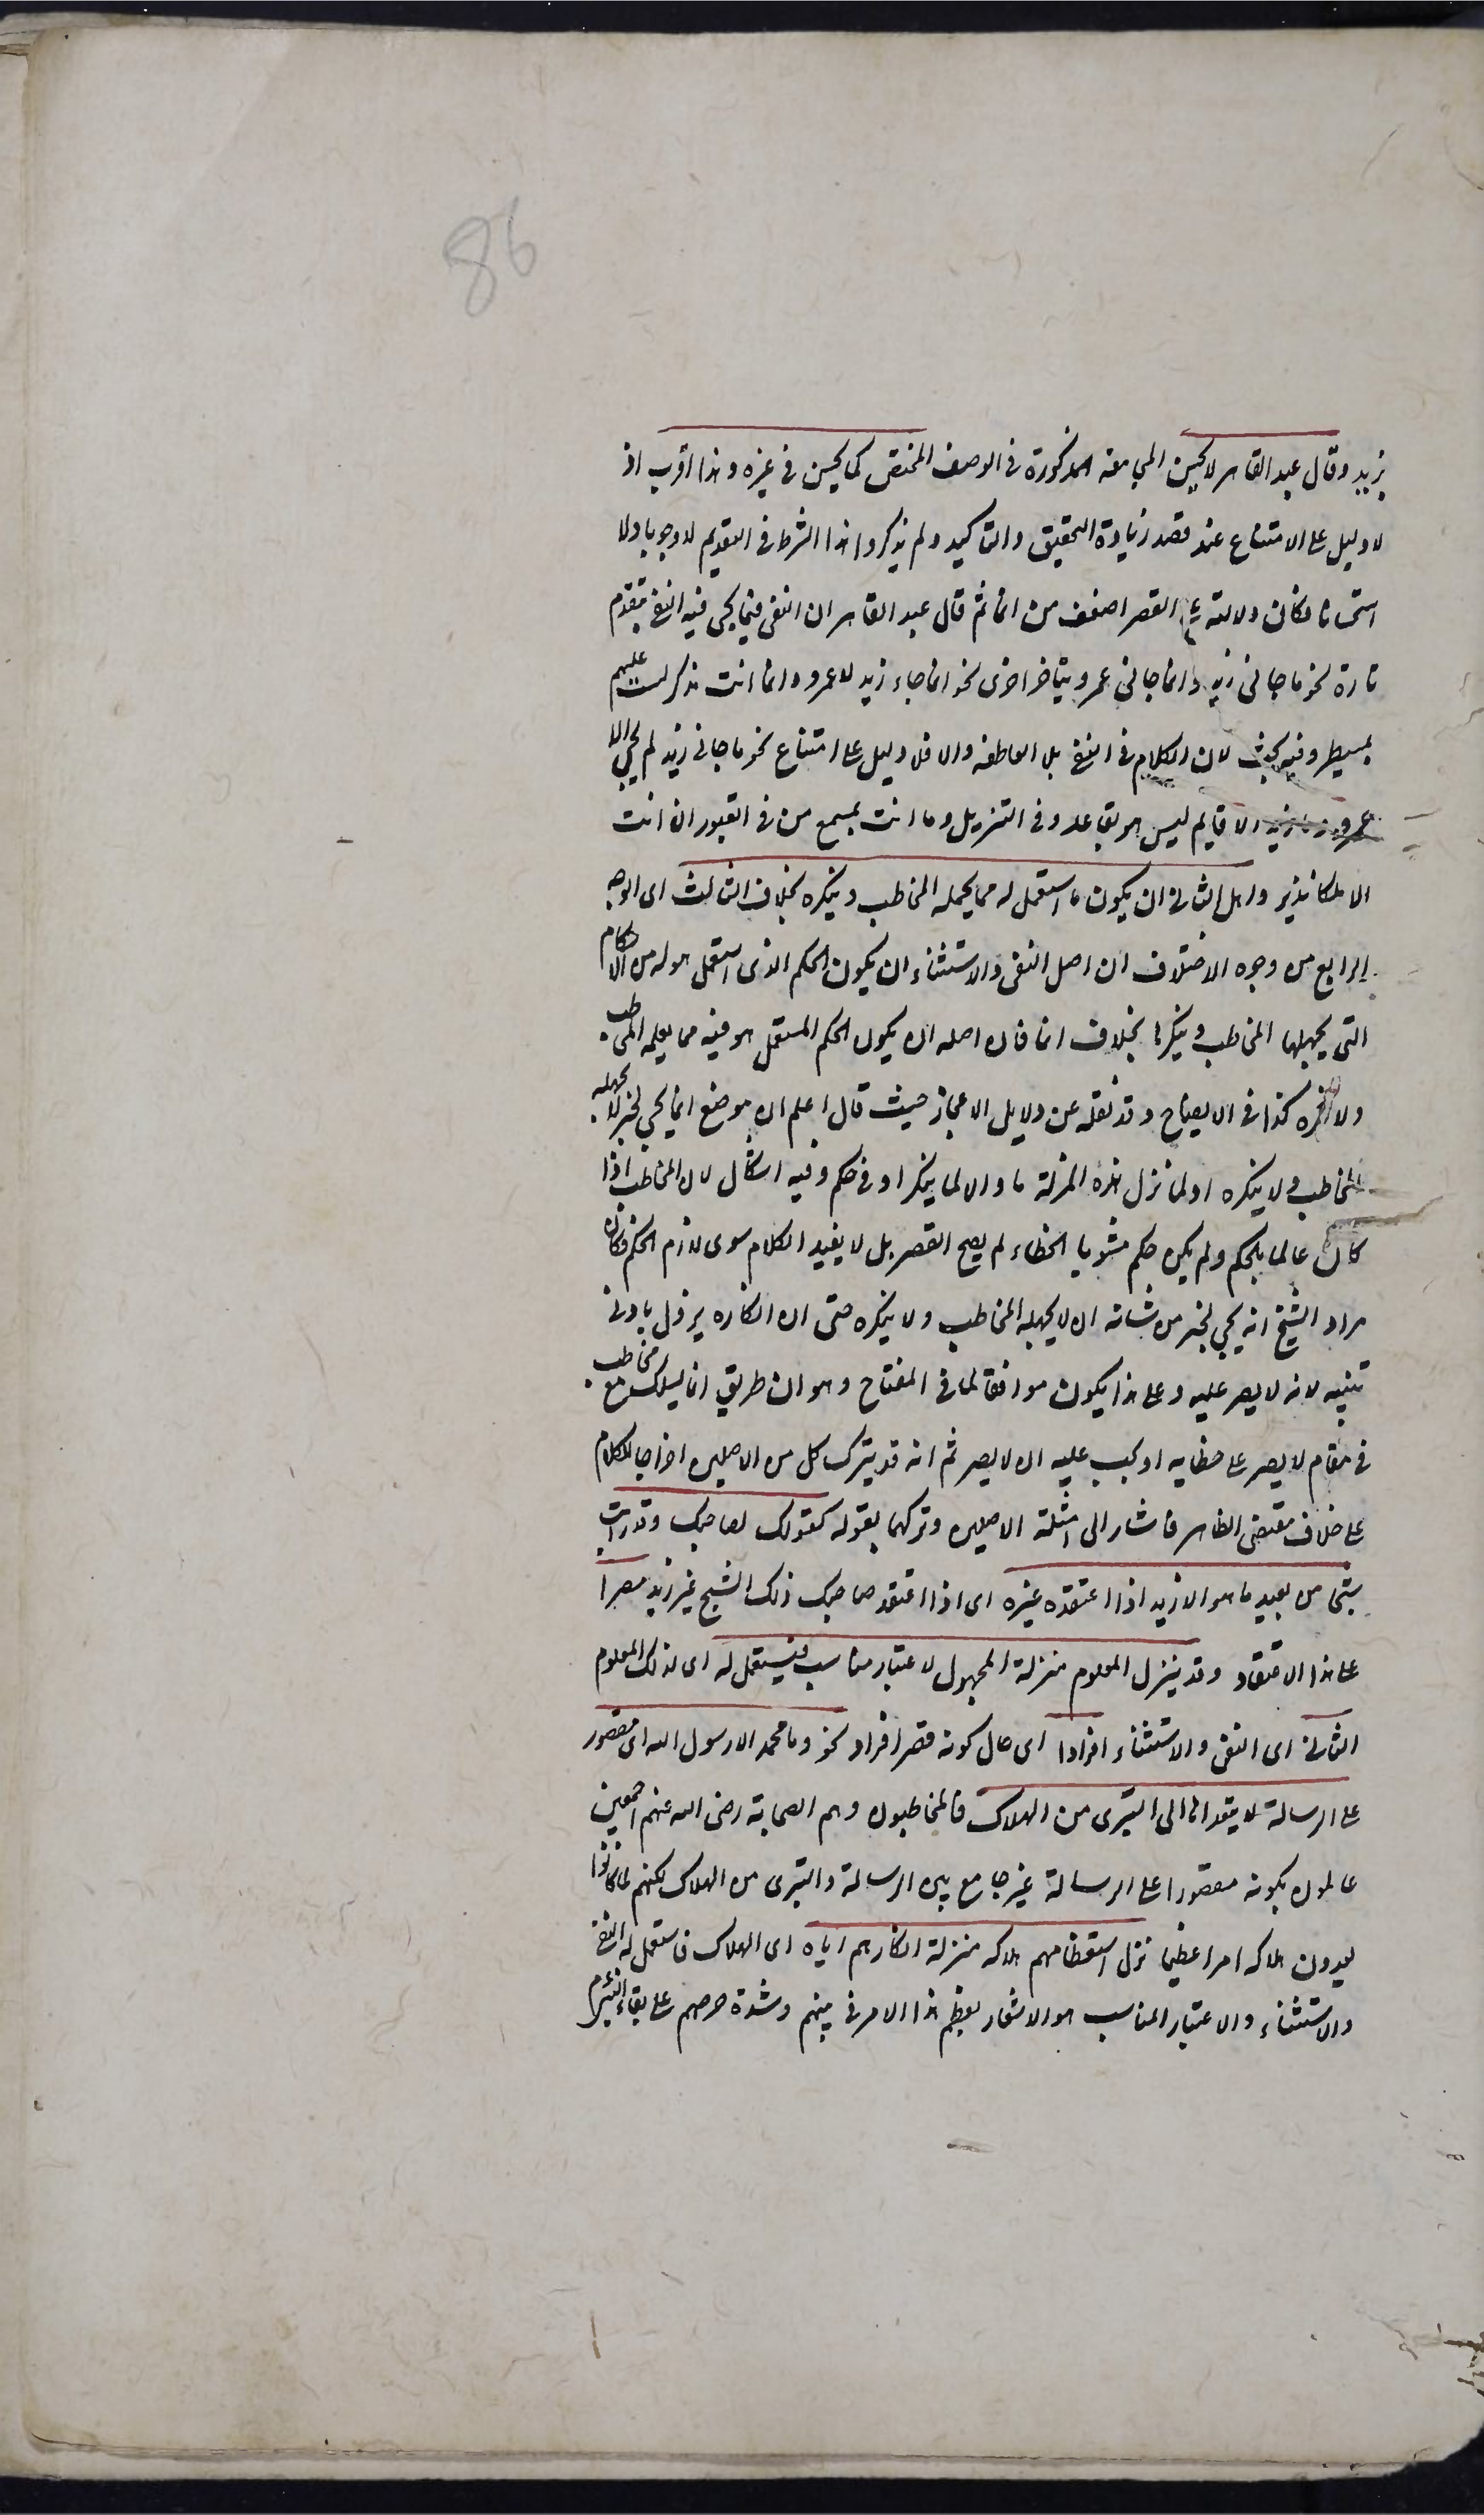 86
بزيد وقال عبد القاهر لا يحسن المجامعة المذكورة في الوصف المختص كما يحسن في غيره وهذا اقرب اذ
لا دليل على الامتناع عند قصد زيادة التحقيق والتاكيد ولم يذكروا هذا الشرط في التقديم لا وجوبا ولا
استحسانا فكان دلالته على القصر اضعف من انما ثم قال عبد القاهر ان النفي فيما يجي فيه النفي يتقدم
تارة نحو ما جاني زيد وانما جاني عمرو يتاخر اخرى نحو انما جاء زيد لا عمرو وانما انت مذكر لست عليهم
بمسيطر وفيه بحث لان الكلام في النفي بلا العاطفة والا فلا دليل على امتناع نحو ما جاني زيد لم يجي الا
عمرو وما زيد الا قايم ليس هو بقاعد وفي التنزيل وما انت بمسمع من في القبور ان انت
الا نذير واصل الثاني ان يكون ما استعمل له مما يجهله المخاطب وينكره بخلاف الثالث اى الوجه
الرابع من وجوه الاختلاف ان اصل النفي والاستثناء ان يكون الحكم الذى استعمل هو له من الاحكام
التى يجهلها المخاطب وينكرها بخلاف انما فان اصله ان يكون الحكم المستعمل هو فيه مما يعلمه المخاطب
ولا ينكره كذا في الايضاح وقد نقله عن دلايل الاعجاز حيث قال اعلم ان موضع انما يجي لخبر لا يجهله
المخاطب ولا ينكره او لما نزل هذه المنزلة ما والا لما ينكر او في حكم وفيه اشكال لان المخاطب اذا
كان عالما بالحكم ولم يكن حكمه مشوبا بالخطاء لم يصح القصر بل لا يفيد الكلام سوى لازم الحكم فكان
مراد الشيخ انه يجي لخبر من شانه ان لا يجهله المخاطب ولا ينكره حتى ان انكاره يزول بادنى
تنبيه لانه لا يصر عليه وعلى هذا يكون موافقا لما في المفتاح وهو ان طريق انما يسلك مع مخاطب
في مقام لا يصر على خطايه او يجب عليه ان لا يصر ثم انه قد يترك كل من الاصلين اخراجا للكلام
على خلاف مقتضى الظاهر فاشار الى امثلة الاصلين وتركهما بقوله كقولك لصاحبك وقد رايت
شبحا من بعيد ما هو الا زيد اذا اعتقده غيره اى اذا اعتقد صاحبك ذلك الشبح غير زيد مصرا
على هذا الاعتقاد وقد ينزل المعلوم منزلة المجهول لاعتبار مناسب فيستعمل له اى لذلك المعلوم
الثاني اى النفي والاستثناء افرادا اى حال كونه قصر افراد نحو وما محمد الا رسول الله اى مقصور
على الرسالة لا يتعداها الى التبرى من الهلاك فالمخاطبون وهم الصحابة رضي الله عنهم اجمعين
عالمون بكونه مقصورا على الرسالة غير جامع بين الرسالة والتبرى من الهلاك لكنهم لما كانوا
يعدون هلاكه امرا عظيما نزل استعظامهم هلاكه منزلة انكارهم اياه اى الهلاك فاستعمل له النفي
والاستثناء والاعتبار المناسب هو الاشعار بعظم هذا الامر في بينهم وشدة حرصهم على بقاء